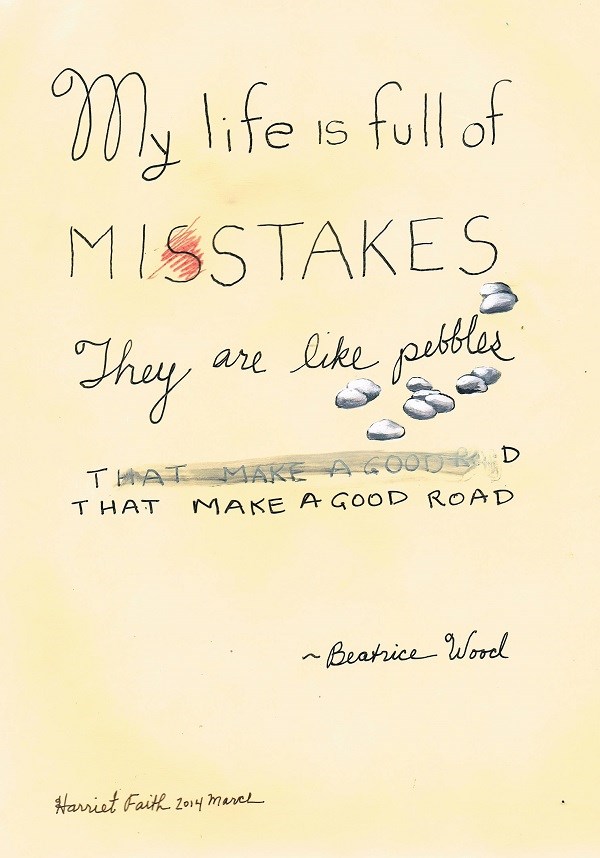 My life is full of
MISSTAKES
They are like pebbles
THAT MAKE A GOOD ROAD
THAT MAKE A GOOD ROAD
~Beatrice Wood
Harriet Faith 2014 March